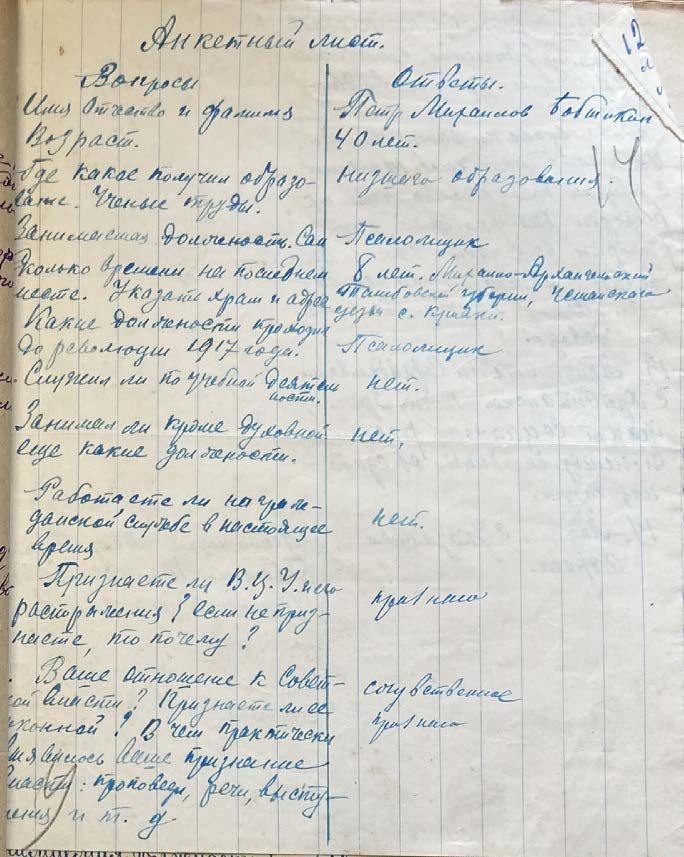 Анкетный лист.
Вопросы Ответы.
Имя Отчество и фамилия Петр Михаилов
Возраст. 40 лет.
Где какое получил образо- низшего образования.
вание. Ученые труды.
Занимаемая должность. Ско Псаломщик
сколько времени на последнем 8 лет. Михаило-Архангельский
месте. Указать храм и адрес Тамбовской губернии,
Какие должности проходил уезда с.
до революции 1917 года. Псаломщик
Служил ли по учебной деятель нет.
ности.
Занимал ли кроме духовной нет,
еще какие должности.
Работаете ли на граж-
данской службе в настоящее нет.
время
Признаете ли В.Ц.У. и его
распоряжения? если не приз- признаю
наете, то почему?
Ваше отношение к Совет- сочувственное
кой власти? Признаете ли ее
конной? В чем практически признаю
явилось Ваше признание
власти: проповеди, речи, высту-
ления и т. д
12
14